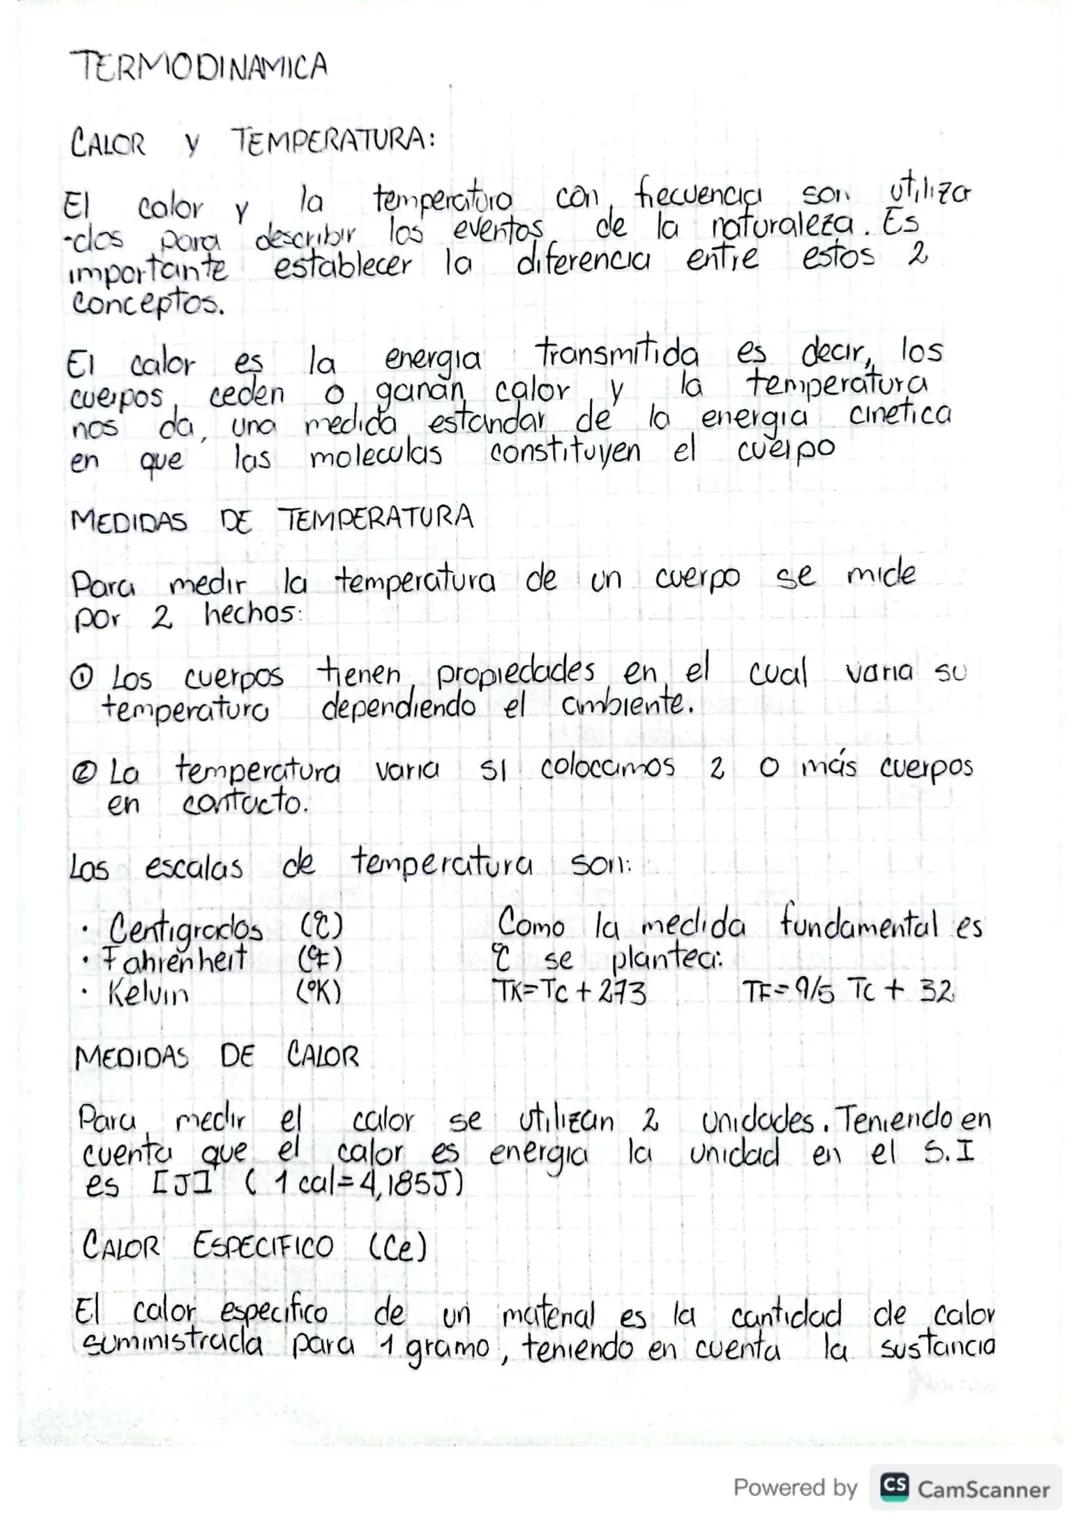 TERMODINAMICA
CALOR y TEMPERATURA:
El calor y la temperatura con frecuencia son utiliza
-dos para describir los eventos de la naturaleza. Es
importante establecer la diferencia entre estos 2
conceptos.
El calor es la energia transmitida es decir, los
cuerpos ceden o ganan calor y la temperatura
nos da, una medida estandar de la energia cinetica
en que las moleculas constituyen el cuerpo
MEDIDAS DE TEMPERATURA
Para medir la temperatura de un cuerpo se mide
por 2 hechos:
① Los cuerpos tienen propiedades en el cual varia su
temperatura dependiendo el ambiente.
② La temperatura varia si colocamos 2 o más cuerpos
en contacto.
Las escalas de temperatura son:
• Centigrados (°C) Como la medida fundamental es
• Fahrenheit (°F) °C se plantea:
• Kelvin (°K) TK=Tc + 273 TF= 9/5 Tc + 32
MEDIDAS DE CALOR
Para medir el calor se utilizan 2 unidades. Teniendo en
cuenta que el calor es energia la unidad en el S.I
es [J] (1 cal= 4,185J)
CALOR ESPECIFICO (Ce)
El calor especifico de un material es la cantidad de calor
suministrada para 1 gramo, teniendo en cuenta la sustancia
Powered by CS CamScanner